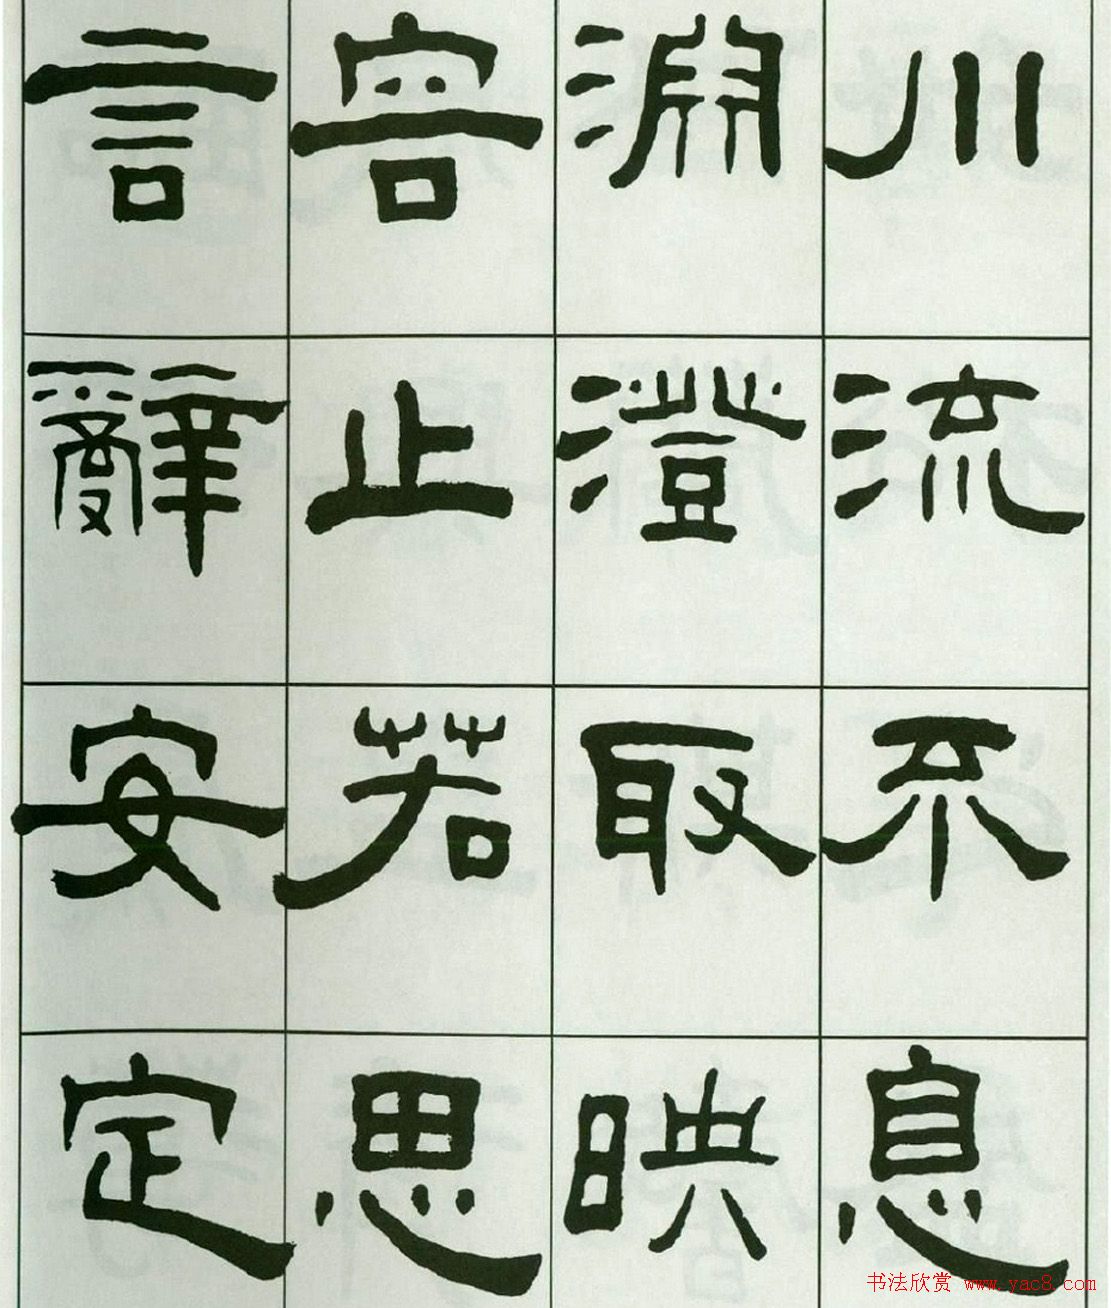 川流不息
淵澄取映
容止若思
言辭安定
书法欣赏 www.yac8.com